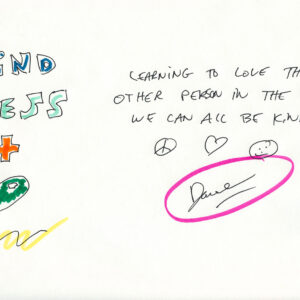 IND
ESS
LEARNING TO LOVE TH
OTHER PERSON IN THE
WE CAN ALL BE KIN